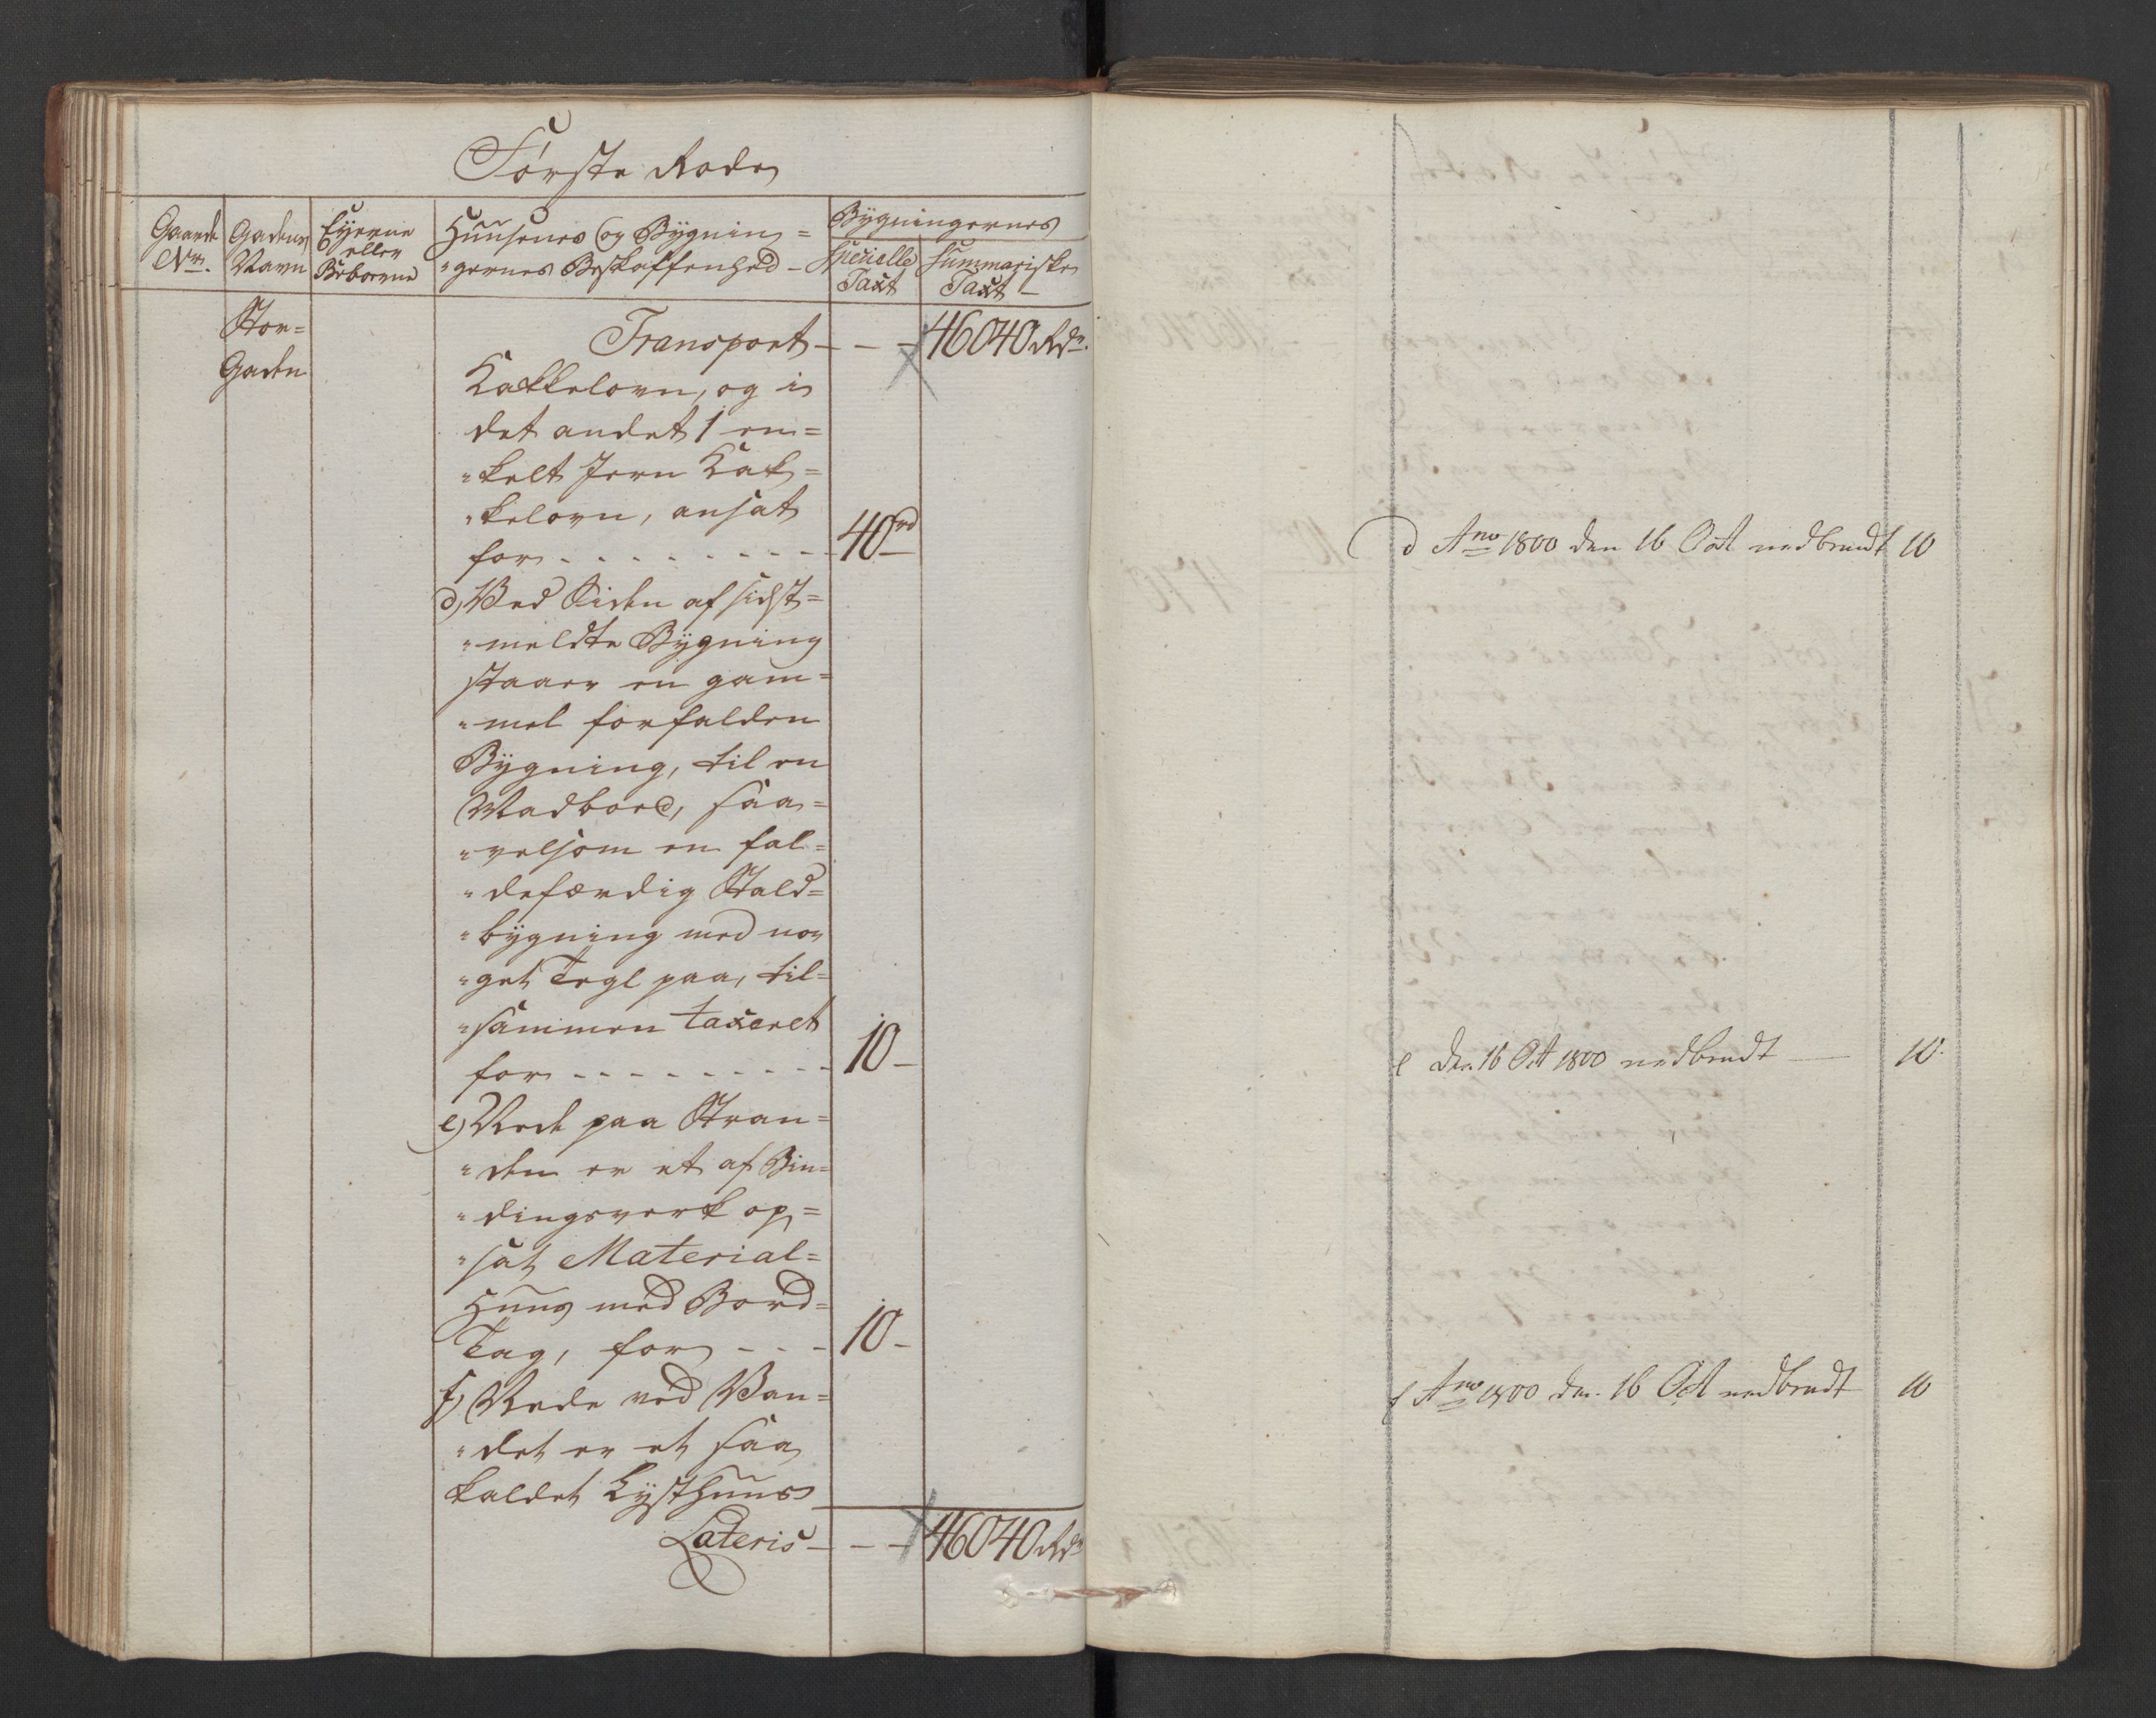 Første Rode
Gaards Gadens Eyerne Huusenes og Bÿgnin= Bÿgningernes
eller
No. Navn Beboerne "gernes Beskaffenhed - Specielle Summariske
Taxt Taxt -
Stor=
Gaden
Transport - - - 46040 Rdr.
Kakkelovn, og i
det andet 1 en=
"kelt Jern Kak=
"kelovn, ansat
for - - - - - - - - - 40 rd
d) Ved Siden af sidst=
"meldte Bÿgning
staaer en gam=
"mel forfalden
Bÿgning, til en
Madboed, saa=
"velsom en fal=
"defærdig Stald=
"bÿgning med no=
"get Tegl paa, til=
"sammen taxeret
for - - - - - - - - - 10 -
e) Nede paa Stran=
"den er et af Bin=
"dingsverk op=
"sat Material=
Huus med Bord=
Tag, for - - - 10 -
f) Nede ved Van=
"det er et saa
kaldet Lÿsthuus
Lateris - - - 46040 Rdr
d Ano 1800 den 16 Oct nedbrendt 10
e den 16 Oct 1800 nedbrendt — 10.
f Ano 1800 den 16 Oct nedbrendt 10